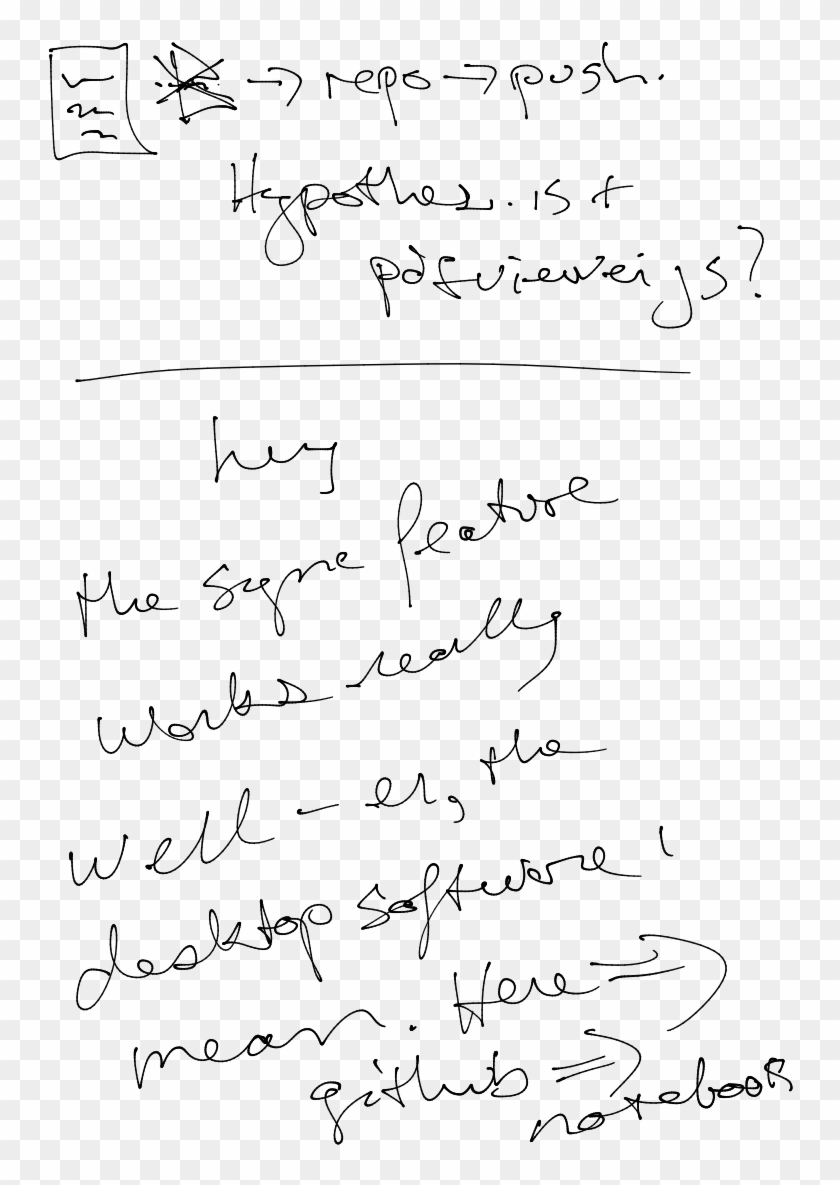 → repo → push.
Hypothes.is +
pdfviewer js?
hey
the sync feature
works really
well – er, the
desktop software I
mean. Here ⇒
github ⇒
notebook